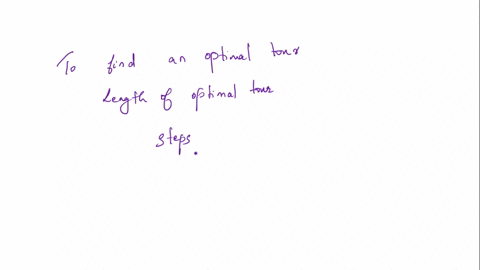 To find an optimal tour
Length of optimal tour
steps.